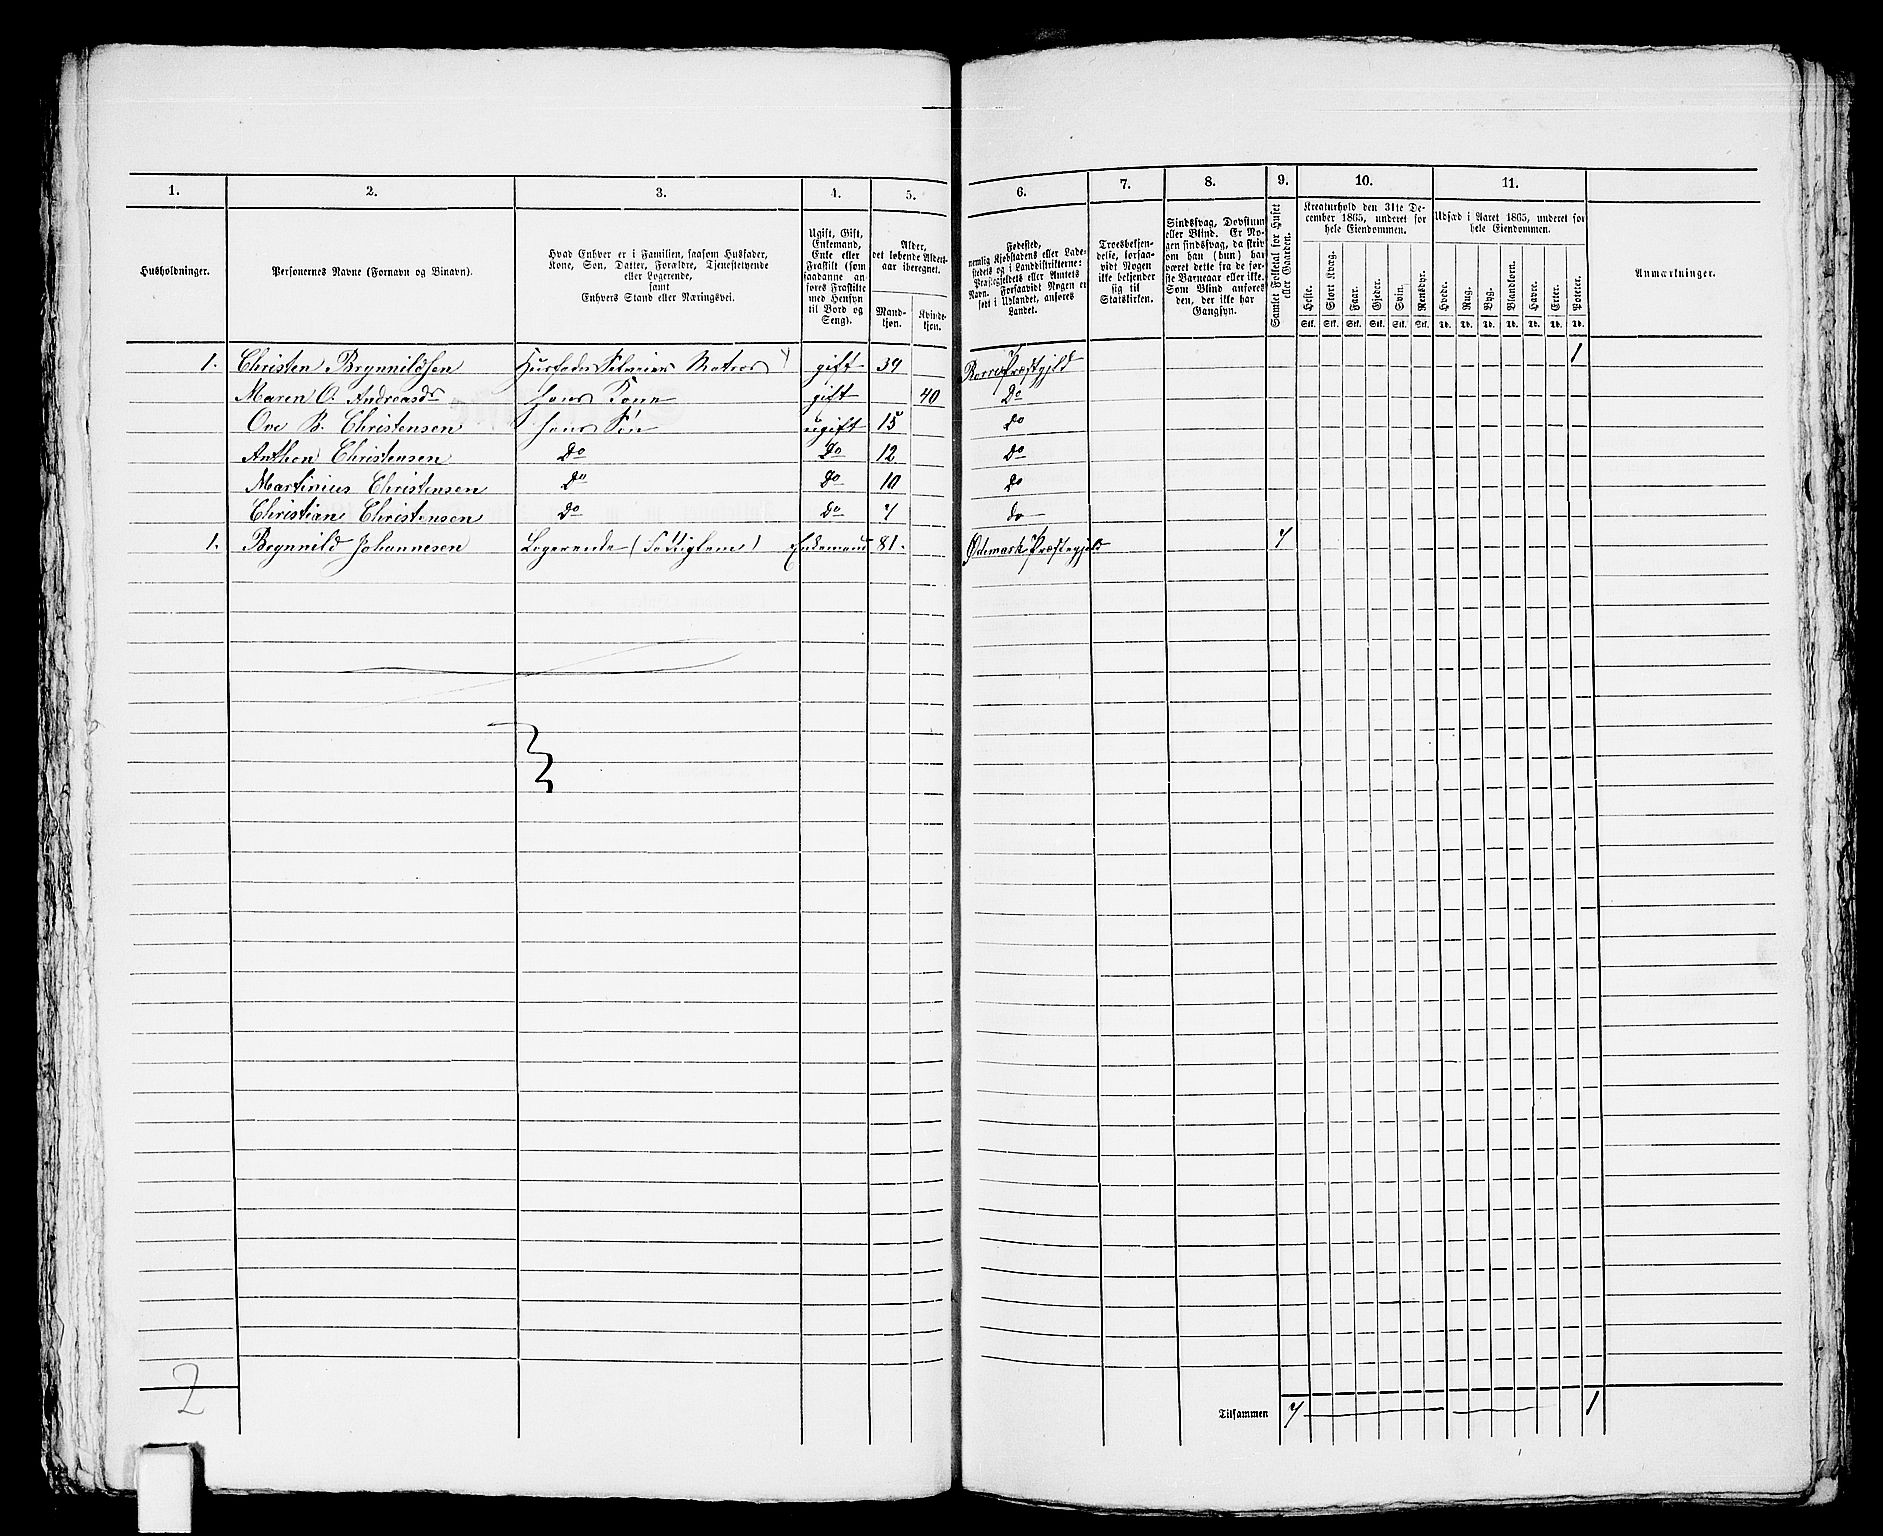 1. 2. 3. 4. 5. 6. 7. 8. 9. 10. 11.
Husholdninger.
Personernes Navne (Fornavn og Binavn).
Hvad Enhver er i Familien, saasom Husfader,
Kone, Søn, Datter, Forældre, Tjenestetyende
eller Logerende,
samt
Enhvers Stand eller Næringsvei.
Ugift, Gift,
Enkemand,
Enke eller
Fraskilt (som
saadanne an-
føres Fraskilte
med Hensyn
til Bord og
Seng).
Alder,
det løbende Alders-
aar iberegnet.
Mand-
kjøn.
Kvinde-
kjøn.
Fødested,
nemlig Kjøbstadens eller Lade-
stedets og i Landdistrikterne:
Præstegjeldets eller Amtets
Navn. Forsaavidt Nogen er
født i Udlandet, anføres
Landet.
Troesbekjen-
delse, forsaa-
vidt Nogen
ikke bekjender
sig til
Statskirken.
Sindssvag, Døvstum
eller Blind. Er No-
gen sindssvag, da skriv
om han (hun) har
været dette fra de før-
ste Barneaar eller ikke.
Som Blind anføres
den, der ikke har
Gangsyn.
Samlet Folketal for Huset
eller Gaarden.
Kreaturhold den 31te De-
cember 1865, underet for
hele Eiendommen.
Heste. Stort Kvæg. Faar. Gjeder. Svin. Rensdyr.
Stk. Stk. Stk. Stk. Stk. Stk.
Udsæd i Aaret 1865, underet for
hele Eiendommen.
Hvede. Rug. Byg. Blandkorn. Havre. Erter. Poteter.
Td. Td. Td. Td. Td. Td. Td.
Anmærkninger.
1. Christen Brynnildsen Husfader Selveier Matros gift 39 Præstgjeld 1
Maren O. Andreasdr hans Kone gift 40 Do
Ove B. Christensen hans Søn ugift 15 do
Anthon Christensen Do Do 12 Do
Martinius Christensen Do Do 10 Do
Christian Christensen Do Do 7 do
1. Brynnild Johannesen Logerende (Fattiglem) Enkemand 81. Ødemark Præstegjeld 7
2
Tilsammen 7 1